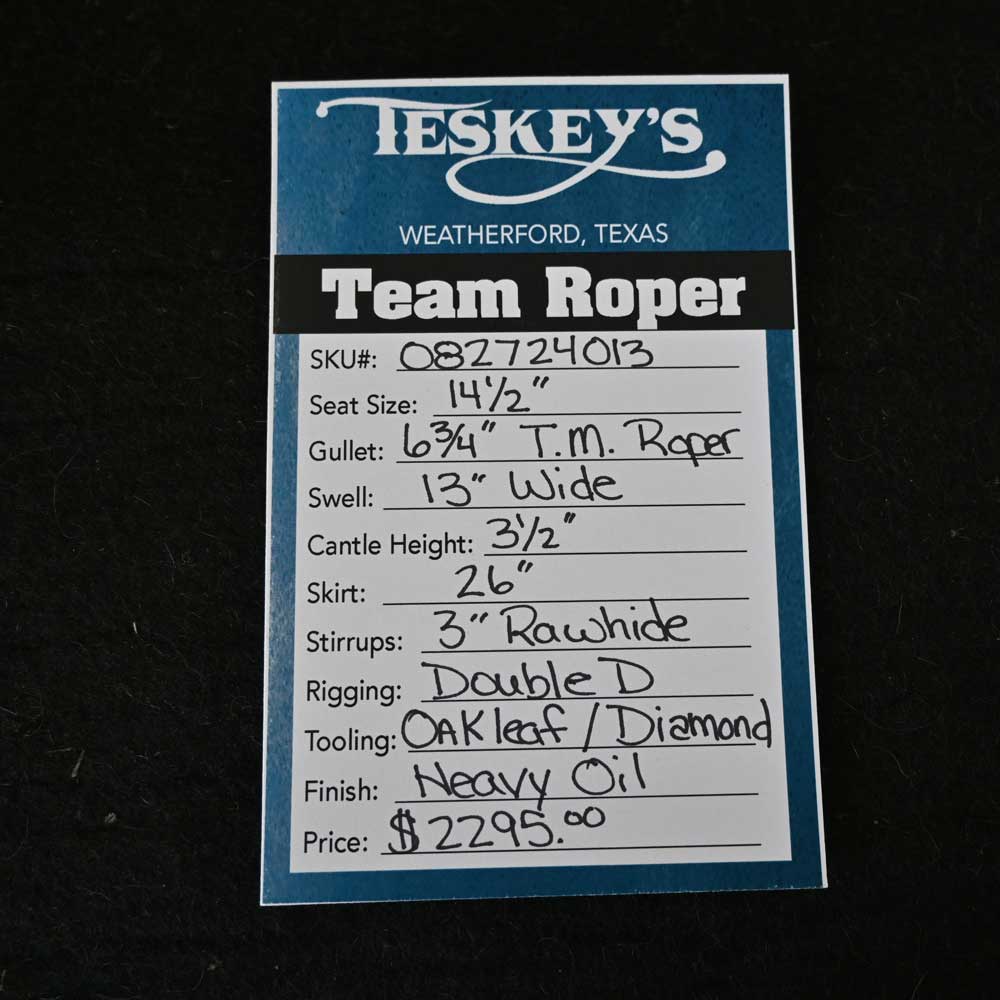 TESKEY'S
WEATHERFORD, TEXAS
Team Roper
SKU#: 082724013
Seat Size: 14 1/2"
Gullet: 6 3/4" T.M. Roper
Swell: 13" Wide
Cantle Height: 3 1/2"
Skirt: 26"
Stirrups: 3" Rawhide
Rigging: Double D
Tooling: OAK leaf / Diamond
Finish: Heavy Oil
Price: $2295.00